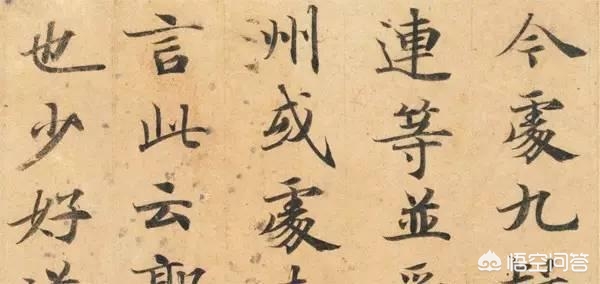 今處九
連等並
州或處
言此云
也少好
悟空问答